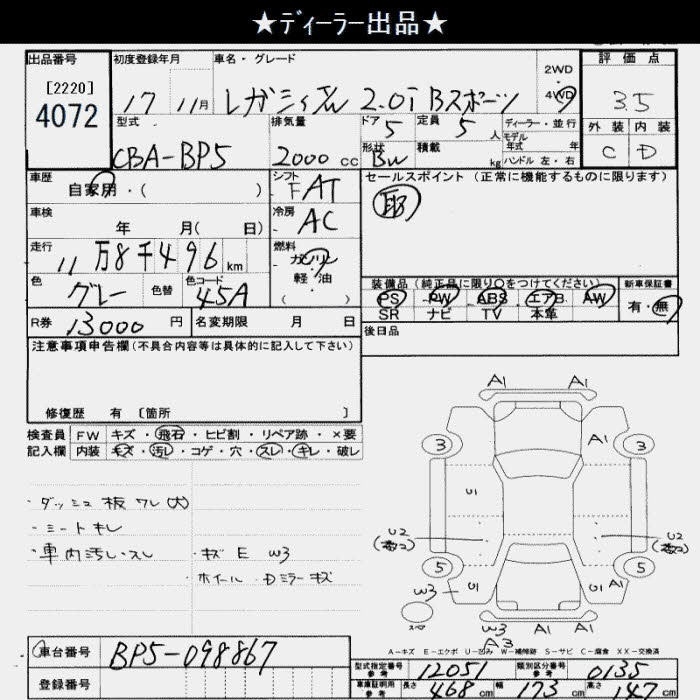 ★ディーラー出品★
出品番号
[2220]
4072
初度登録年月
17 11月
車名・グレード
レガシィワゴン 2.0i Bスポーツ
2WD
4WD
評価点
3.5
外装 内装
C D
型式
CBA-BP5
排気量
2000 cc
ドア 5
形状 BW
定員 5 人
積載 kg
ディーラー・並行
モデル年式 年
ハンドル 左・右
車歴
自家用・( )
シフト
FAT
セールスポイント (正常に機能するものに限ります)
車検
年 月( 日)
冷房
AC
走行
11万8千496 km
燃料
ガソリン
軽・油
・( )
色
グレー
色替
色コード
45A
装備品(純正品に限り○をつけてください)
PS PW ABS エアB. AW
SR ナビ TV 本革
新車保証書
有・無
R券 13000 円
名変期限 月 日
後日品
注意事項申告欄(不具合内容等は具体的に記入して下さい)
修復歴 有〔箇所 〕
検査員
記入欄
FW キズ・飛石・ヒビ割・リペア跡・×要
内装 キズ・汚し・コゲ・穴・スレ・キレ・破レ
・ダッシュ板ワレ(大)
・シートキレ
・車内汚し・スレ
・キズ E W3
・ホイール・Dミラーキズ
A1 A1
3 A1 3
U1
U2 U2
5 5
W3 U1 U1 A1
W3 A1 A1
A3
A-キズ E-エクボ U-凹み W-補修跡 S-サビ C-腐食 XX-交換済
車台番号
BP5-098867
登録番号
型式指定番号
参考
12051
類別区分番号
参考
0135
車庫証明用
参考
長さ 468 cm 幅 173 cm 高さ 147 cm